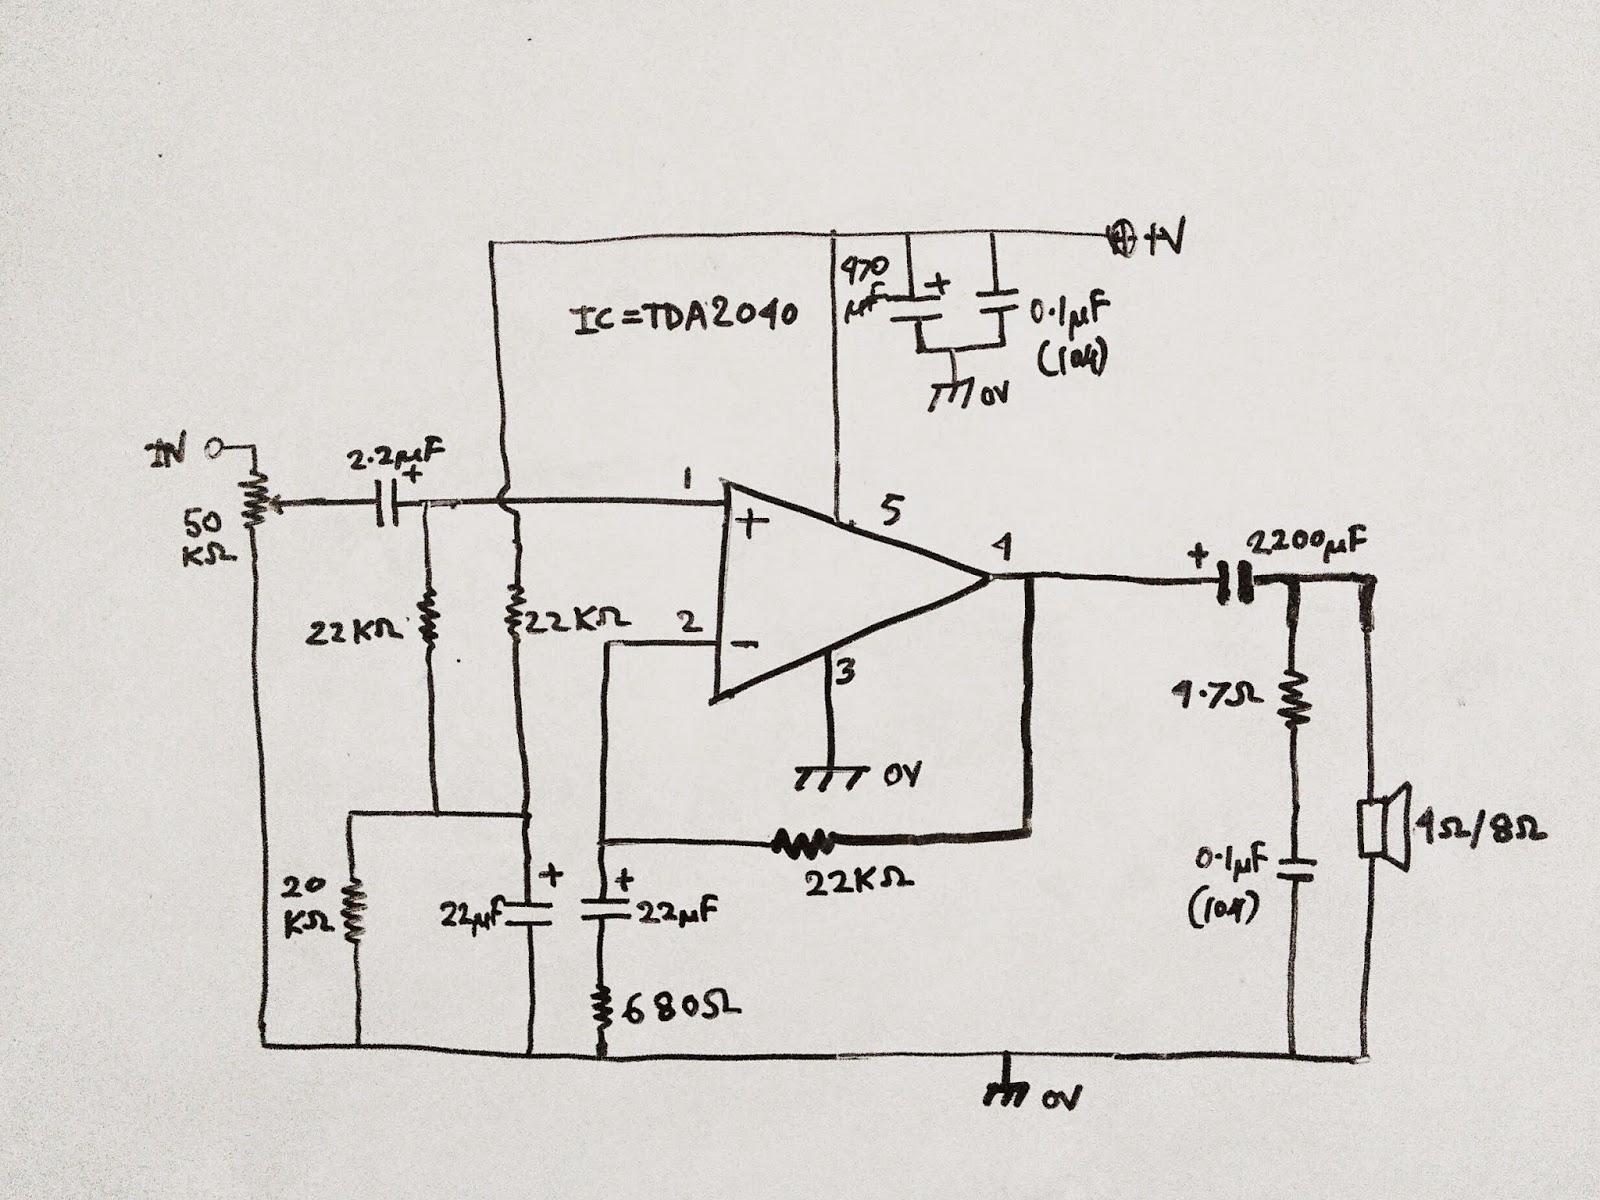 +V
470
μF
+
IC=TDA2040
0.1μF
(104)
0V
IN
2.2μF
+
1
50
KΩ
+
5
4
+
2200μF
22KΩ
22KΩ
2
-
3
4.7Ω
0V
22KΩ
4Ω/8Ω
0.1μF
(104)
20
KΩ
+
22μF
+
22μF
680Ω
0V